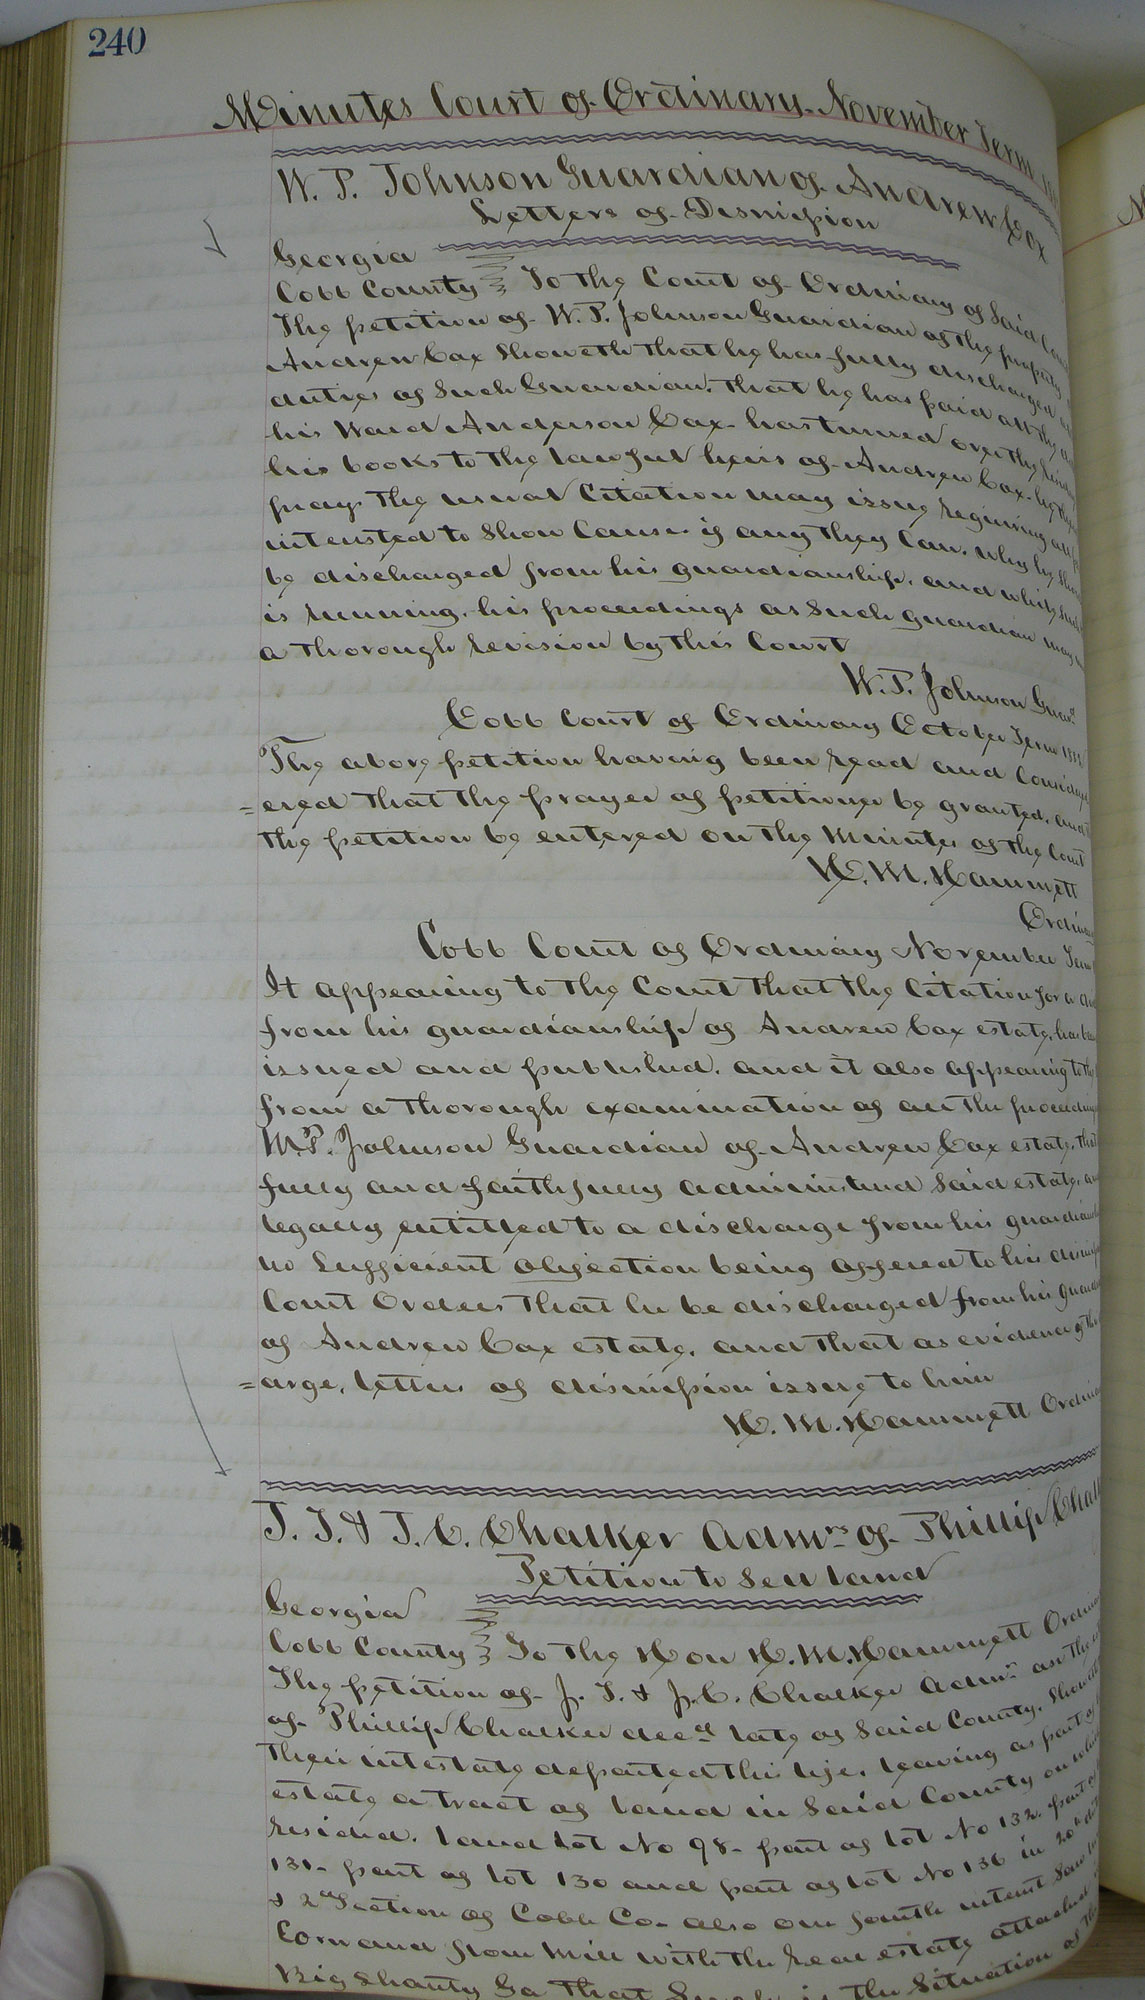 240
Minutes Court of Ordinary November Term
W. P. Johnson Guardian of Andrew Cox
Letters of Dismission
Georgia
Cobb County To the Court of Ordinary of Said
The petition of W. P. Johnson Guardian of the property
Andrew Cox Showeth that he has fully discharged
duties of Such Guardian. that he has paid all the
his Ward Anderson Cox. has turned over the
his books to the lawful heirs of Andrew Cox.
prays the usual Citation may issue requiring all
intersted to Show Cause if any they Can. why he
be discharged from his guardianship. and which
is running. his proceedings as Such guardian may
a thorough revision by this Court
W. P. Johnson Guar
Cobb Court of Ordinary October Term
The above petition having been read and Consider
=ered that the prayer of petitioner be granted. and
the petition be entered on the Minutes of the Court
H. M. Hammett
Ordinary
Cobb Court of Ordinary November Term
It appearing to the Court that the Citation for a
from his guardianship of Andrew Cox estate. has
issued and published. and it also appearing to the
from a thorough examination of all the proceedings
W.P. Johnson Guardian of Andrew Cox estate. that
fully and faithfully administerd Said estate.
legally entitled to a discharge from his guardian
no Sufficient objection being offered to his
Court Orders that he be discharged from his
of Andrew Cox estate. and that as evidence of
=arge. letters of dismission issue to him
H. M. Hammett Ordinary
J. J. & J. C. Chalker Admrs of Phillip
Petition to Sell land
Georgia
Cobb County To the Hon H. M. Hammett
The petition of J. J. & J. C. Chalker Admrs on the
of Phillip Chalker decd late of Said County.
their intestate departed this life. leaving as part of
estate a tract of land in Said County on
resided. land Lot No 98. part of Lot No 132. part of
131. part of Lot 130 and part of Lot No 136 in 20th
& 2nd Section of Cobb Co. also one fourth interst Saw
Corn and from Mill with the real estate attached
Big Shanty Ga That Such is the Situation of